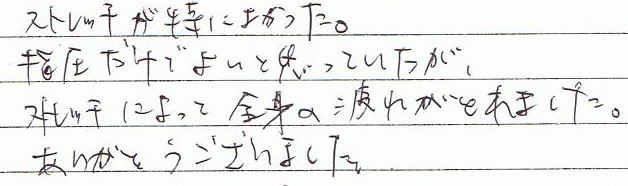 ストレッチが特によかった。
指圧だけでよいと思っていたが、
ストレッチによって全身の疲れがとれました。
ありがとうございました。